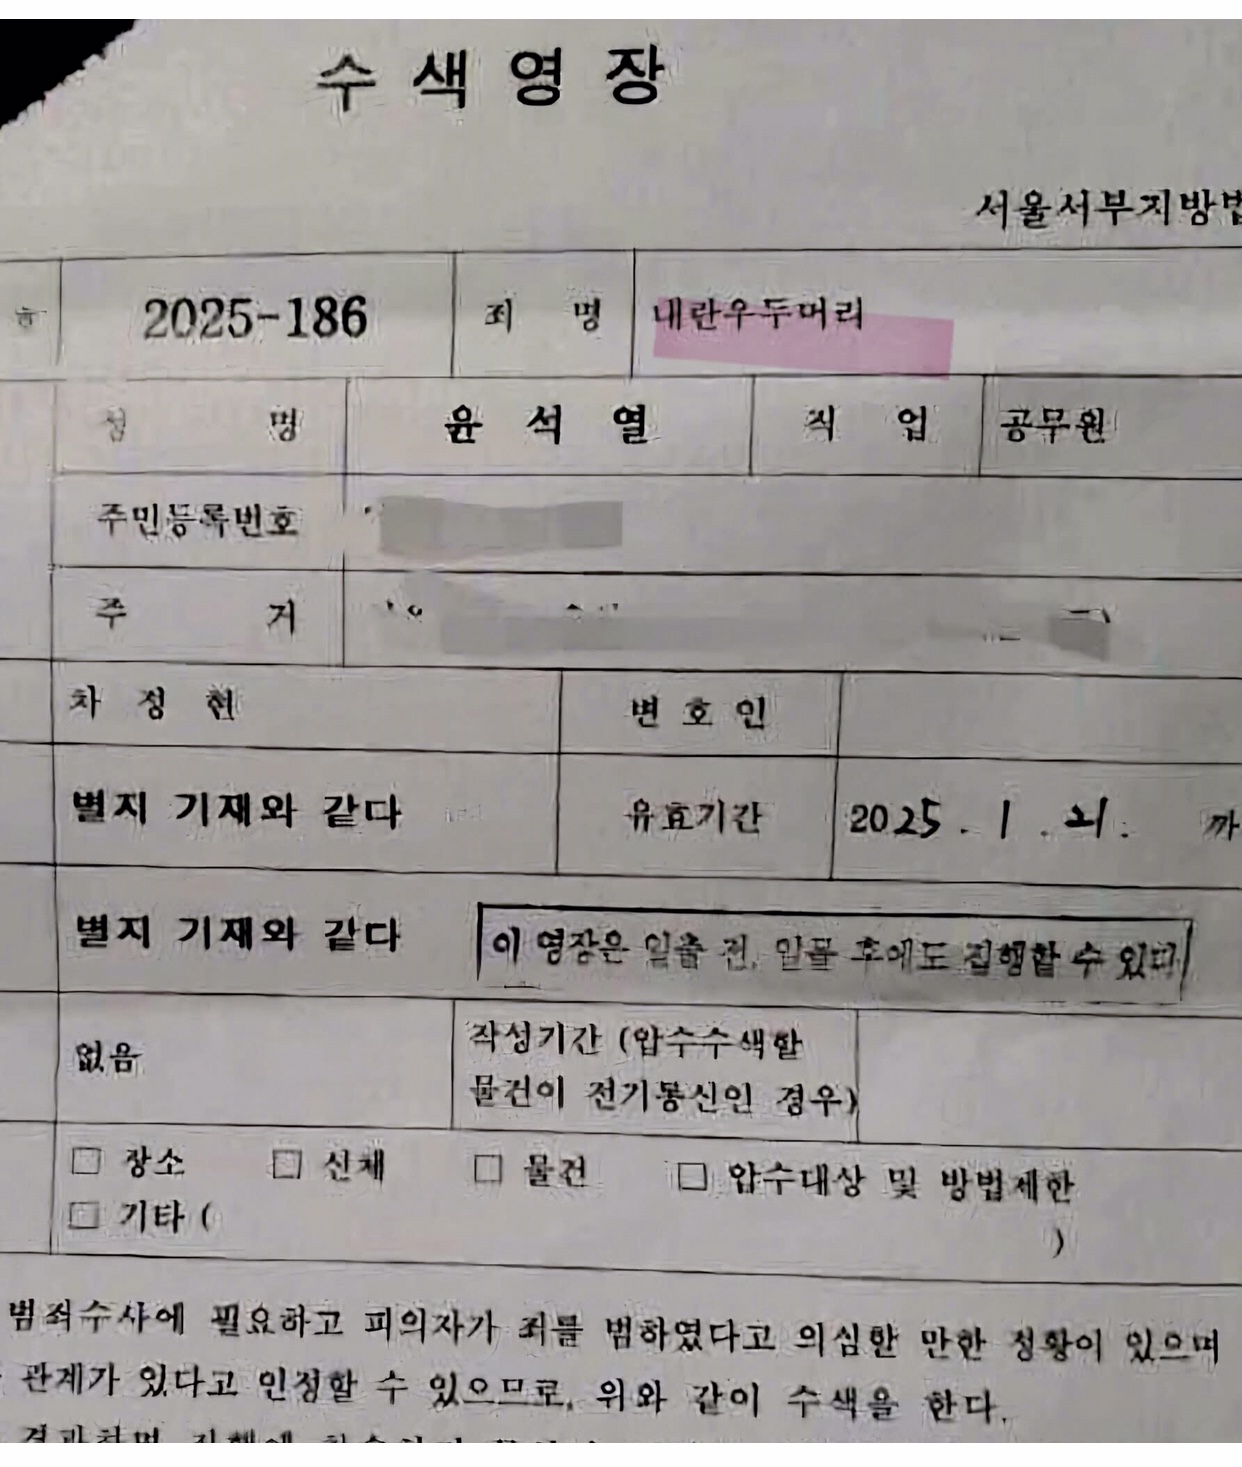 수 색 영 장
서울서부지방법
호 2025-186 죄 명 내란우두머리
성 명 윤 석 열 직 업 공무원
주민등록번호
주 거
차 정 현 변 호 인
별지 기재와 같다 유효기간 2025. 1. 21. 까
별지 기재와 같다 이 영장은 일출 전, 일몰 후에도 집행할 수 있다
없음 작성기간 (압수수색할
물건이 전기통신인 경우)
□ 장소 □ 신체 □ 물건 □ 압수대상 및 방법제한
□ 기타 (
)
범죄수사에 필요하고 피의자가 죄를 범하였다고 의심할 만한 정황이 있으며
관계가 있다고 인정할 수 있으므로, 위와 같이 수색을 한다.